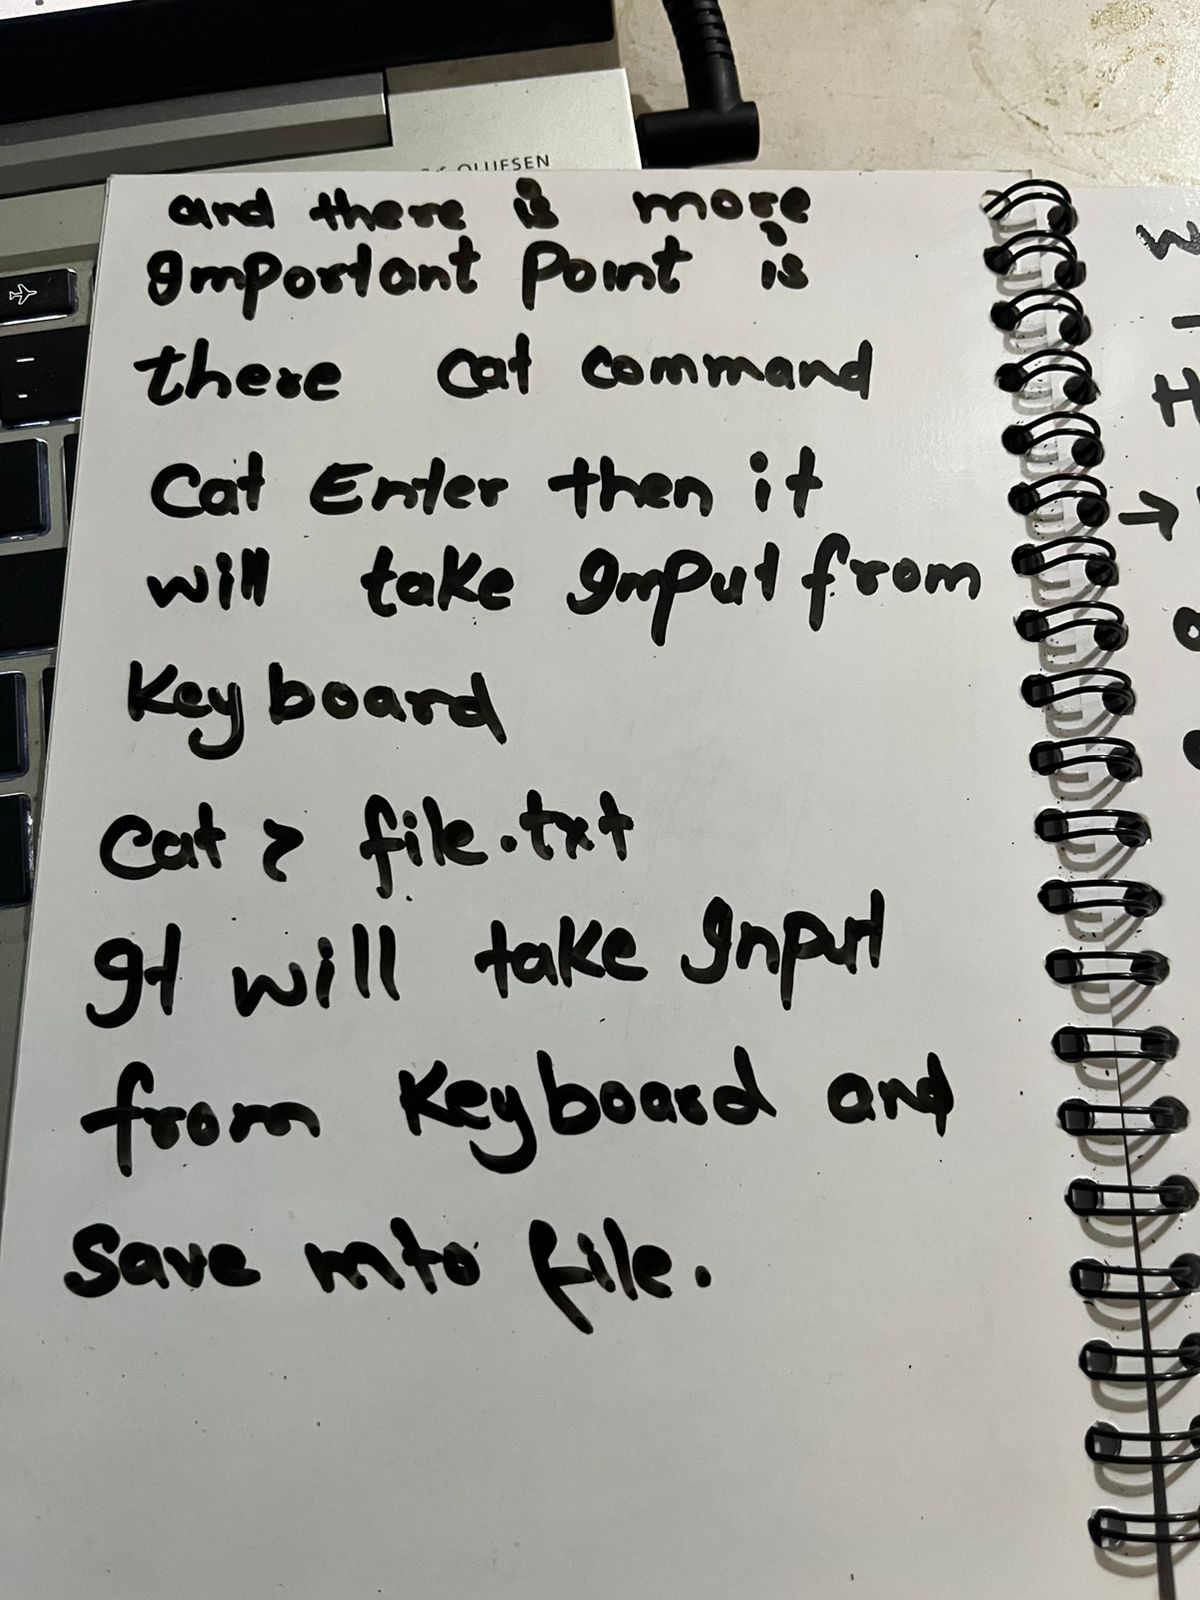 OLUFSEN
and there is more
Important Point is
there cat command
Cat Enter then it
will take Input from
Keyboard
Cat > file.txt
It will take Input
from Keyboard and
Save into file.